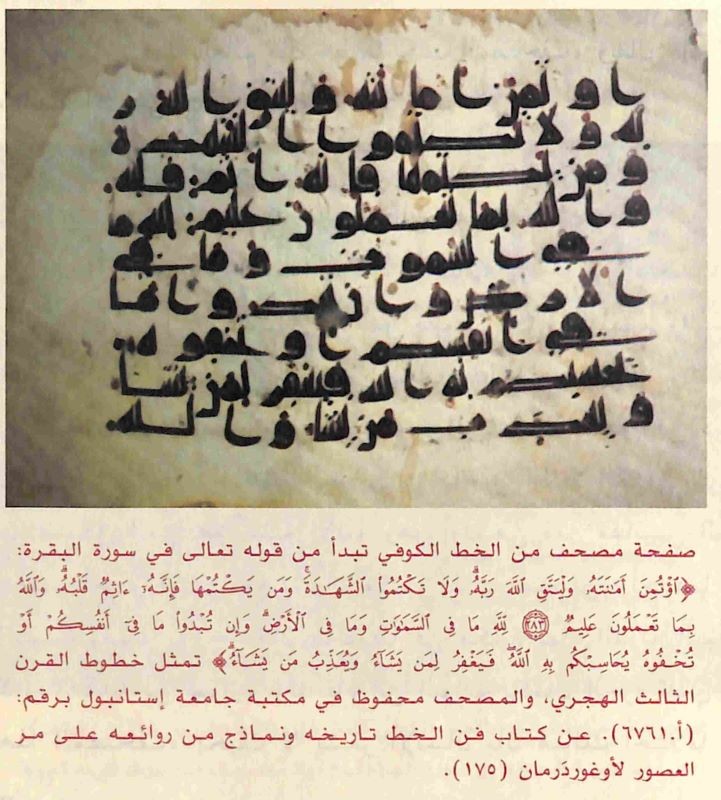 اوتمن امنته وليتق الله ر
به ولا تكتموا الشهدة
ومن يكتمها فانه اثم قلبه
والله بما تعملون عليم لله ما
في السموت وما في
الارض وان تبدوا ما
في انفسكم او تخفوه
يحسبكم به الله فيغفر لمن يشا
ويعذب من يشا والله
صفحة مصحف من الخط الكوفي تبدأ من قوله تعالى في سورة البقرة:
﴿ٱؤۡتُمِنَ أَمَٰنَتَهُۥ وَلۡيَتَّقِ ٱللَّهَ رَبَّهُۥۗ وَلَا تَكۡتُمُواْ ٱلشَّهَٰدَةَۚ وَمَن يَكۡتُمۡهَا فَإِنَّهُۥٓ ءَاثِمٞ قَلۡبُهُۥۗ وَٱللَّهُ
بِمَا تَعۡمَلُونَ عَلِيمٞ ۝٢٨٣ لِّلَّهِ مَا فِي ٱلسَّمَٰوَٰتِ وَمَا فِي ٱلۡأَرۡضِۗ وَإِن تُبۡدُواْ مَا فِيٓ أَنفُسِكُمۡ أَوۡ
تُخۡفُوهُ يُحَاسِبۡكُم بِهِ ٱللَّهُۖ فَيَغۡفِرُ لِمَن يَشَآءُ وَيُعَذِّبُ مَن يَشَآءُۗ﴾ تمثل خطوط القرن
الثالث الهجري، والمصحف محفوظ في مكتبة جامعة إستانبول برقم:
(أ.٦٧٦١). عن كتاب فن الخط تاريخه ونماذج من روائعه على مر
العصور لأوغوردَرمان (١٧٥).